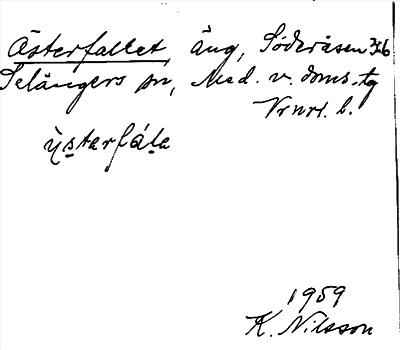 Österfallet, äng, Söderåsen 3:6
Selångers sn, Med. v. doms. tg
Vrnrt. l.
ÿsterfála
1959
K. Nilsson